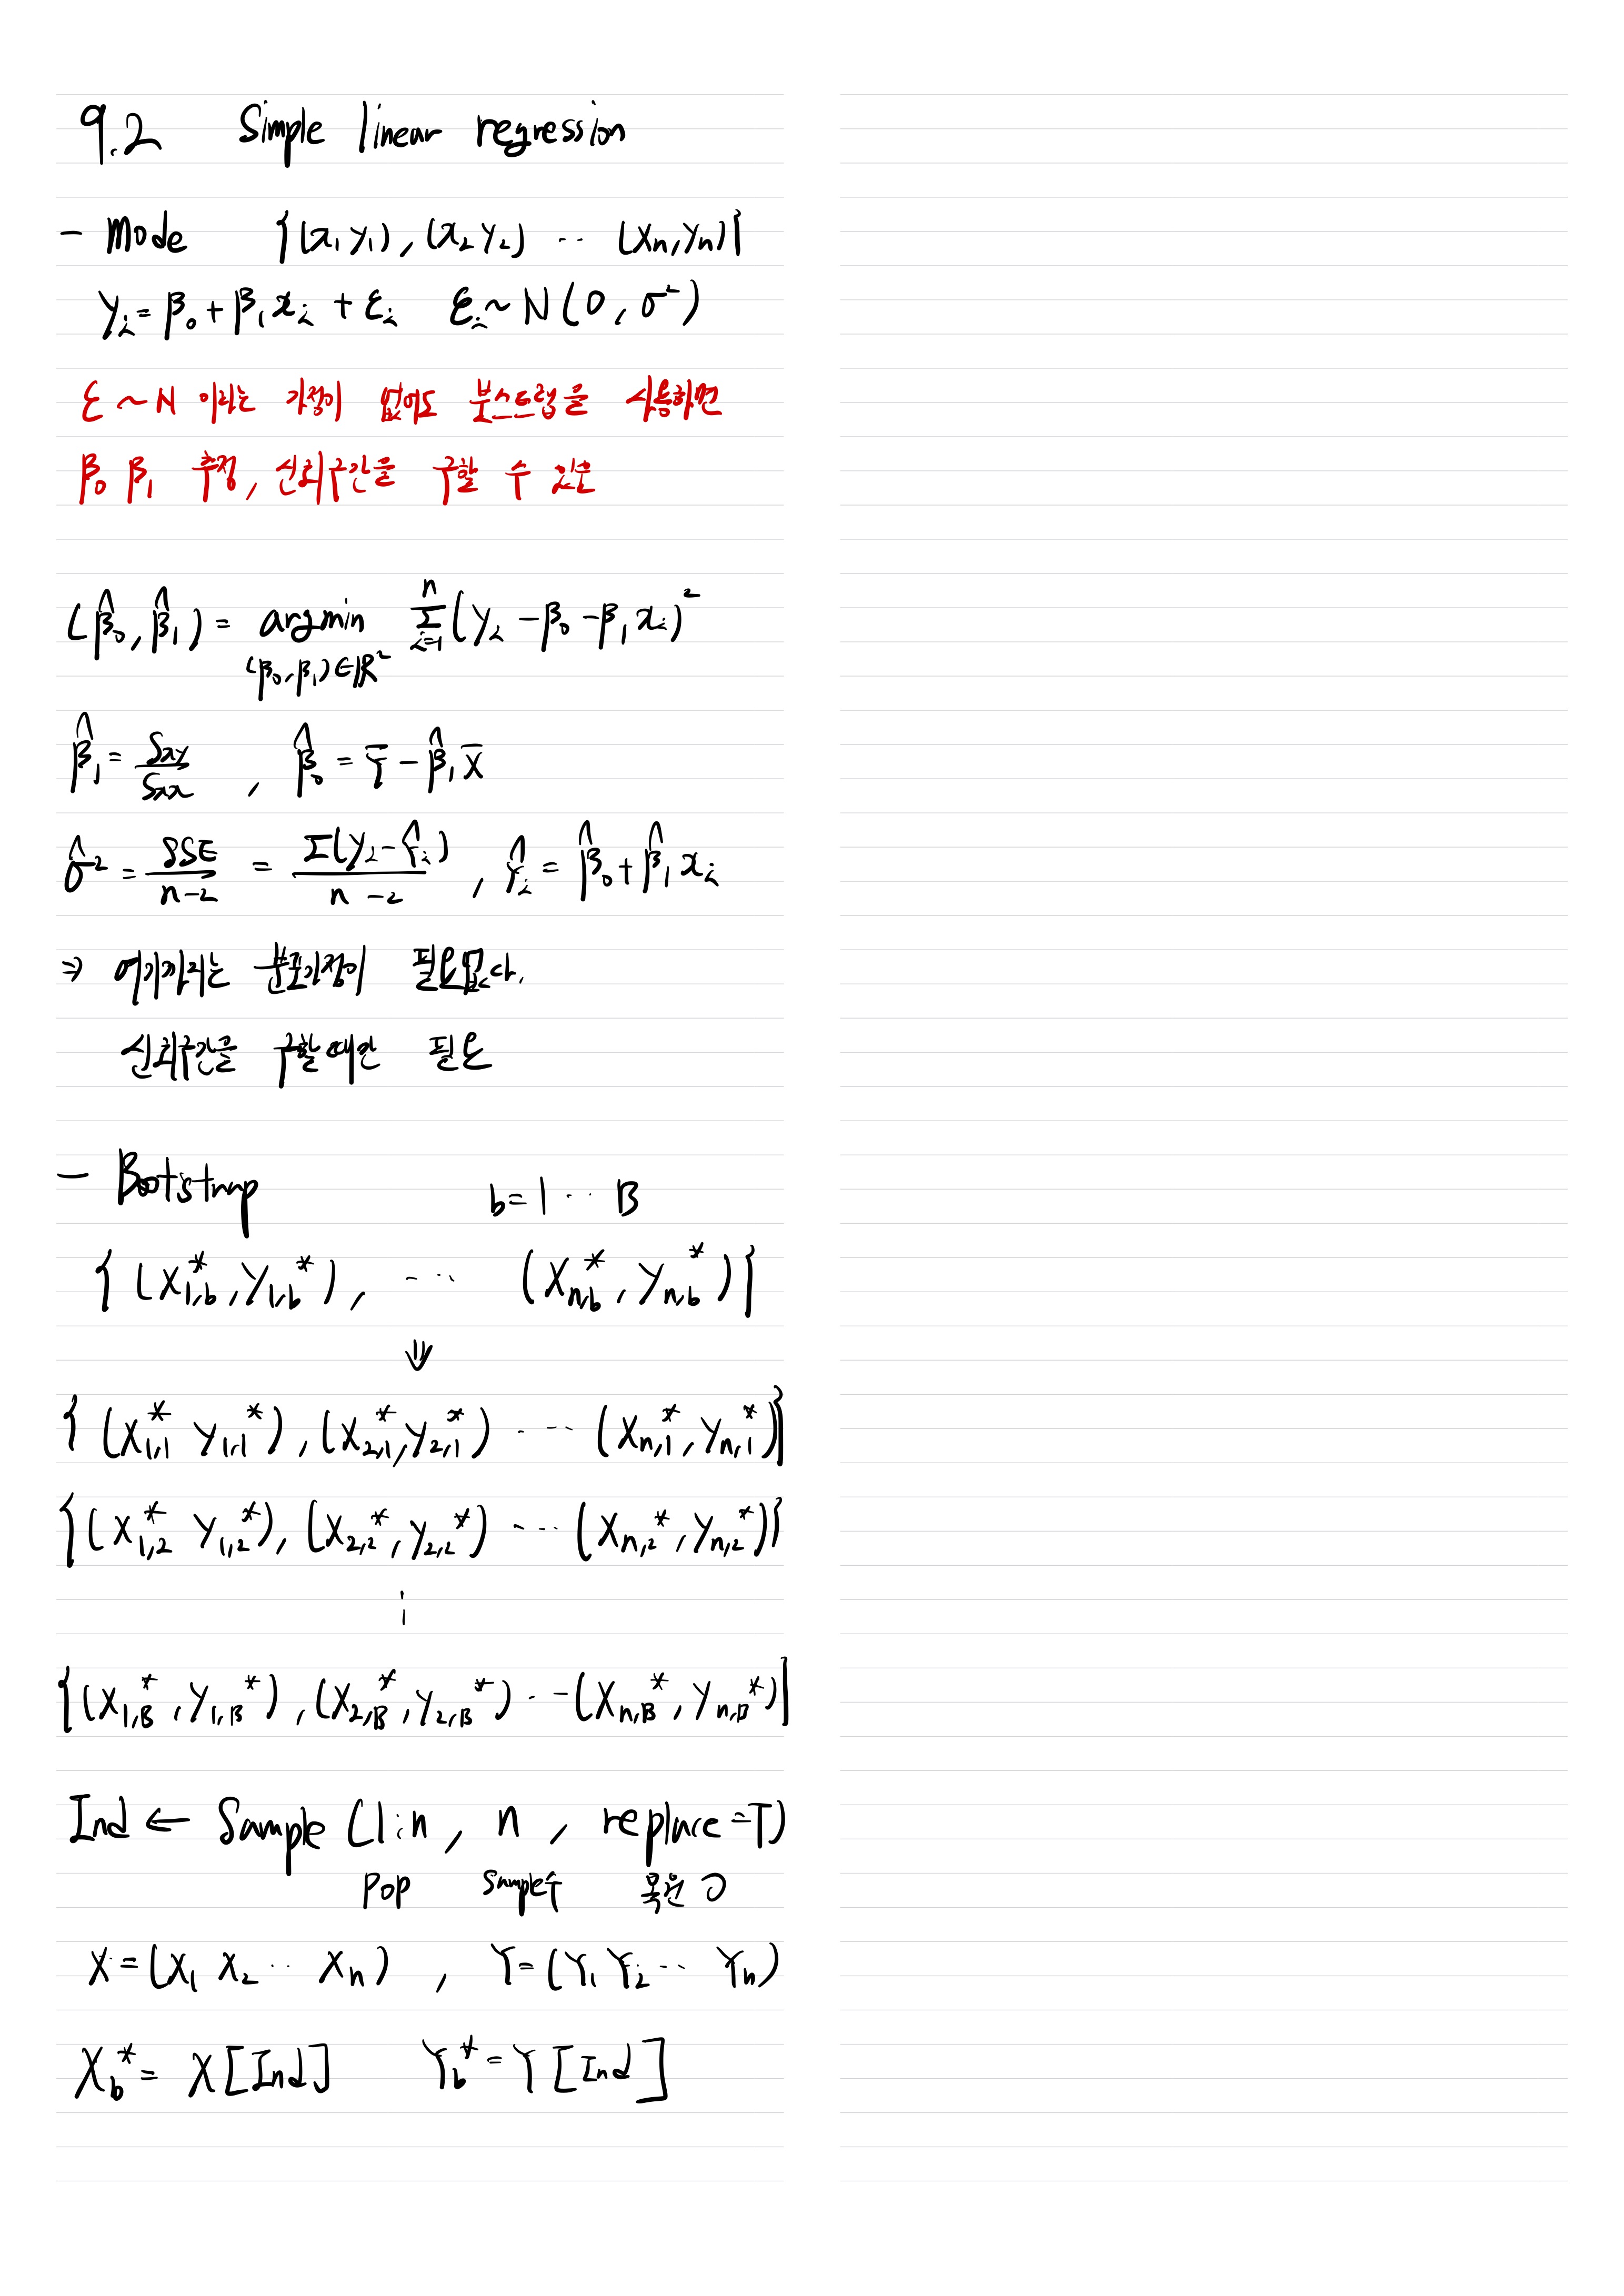 9.2 Simple linear regression
- Mode {(x₁ y₁), (x₂ y₂) ... (xₙ, yₙ)}
yᵢ = β₀ + β₁xᵢ + εᵢ εᵢ ~ N(0, σ²)
ε ~ N 이라는 가정이 없어도 붓스트랩을 사용하면
β₀ β₁ 추정, 신뢰구간을 구할 수 있음
(β̂₀, β̂₁) = argmin Σ (yᵢ - β₀ - β₁xᵢ)²
n
i=1
(β₀, β₁) ∈ ℝ²
β̂₁ = Sxy / Sxx , β̂₀ = Ȳ - β̂₁x̄
σ̂² = SSE / n-2 = Σ(yᵢ - Ŷᵢ) / n-2 , Ŷᵢ = β̂₀ + β̂₁xᵢ
⇒ 여기까지는 분포가정이 필요없다.
신뢰구간을 구할때만 필요
- Bootstrap b = 1 ... B
{ (X*₁,b , y*₁,b), ... (X*n,b , y*n,b) }
⇓
{ (X*₁,₁ y*₁,₁), (X*₂,₁, y*₂,₁) ... (X*n,₁, y*n,₁) }
{ (X*₁,₂ y*₁,₂), (X*₂,₂, y*₂,₂) ... (X*n,₂, y*n,₂) }
⋮
{ (X*₁,B , y*₁,B), (X*₂,B, y*₂,B) ... (X*n,B, y*n,B) }
Ind ← Sample (1:n, n, replace=T)
pop sample수 복원 O
X = (X₁ X₂ ... Xn) , Y = (Y₁ Y₂ ... Yn)
X*b = X[Ind] Y*b = Y[Ind]